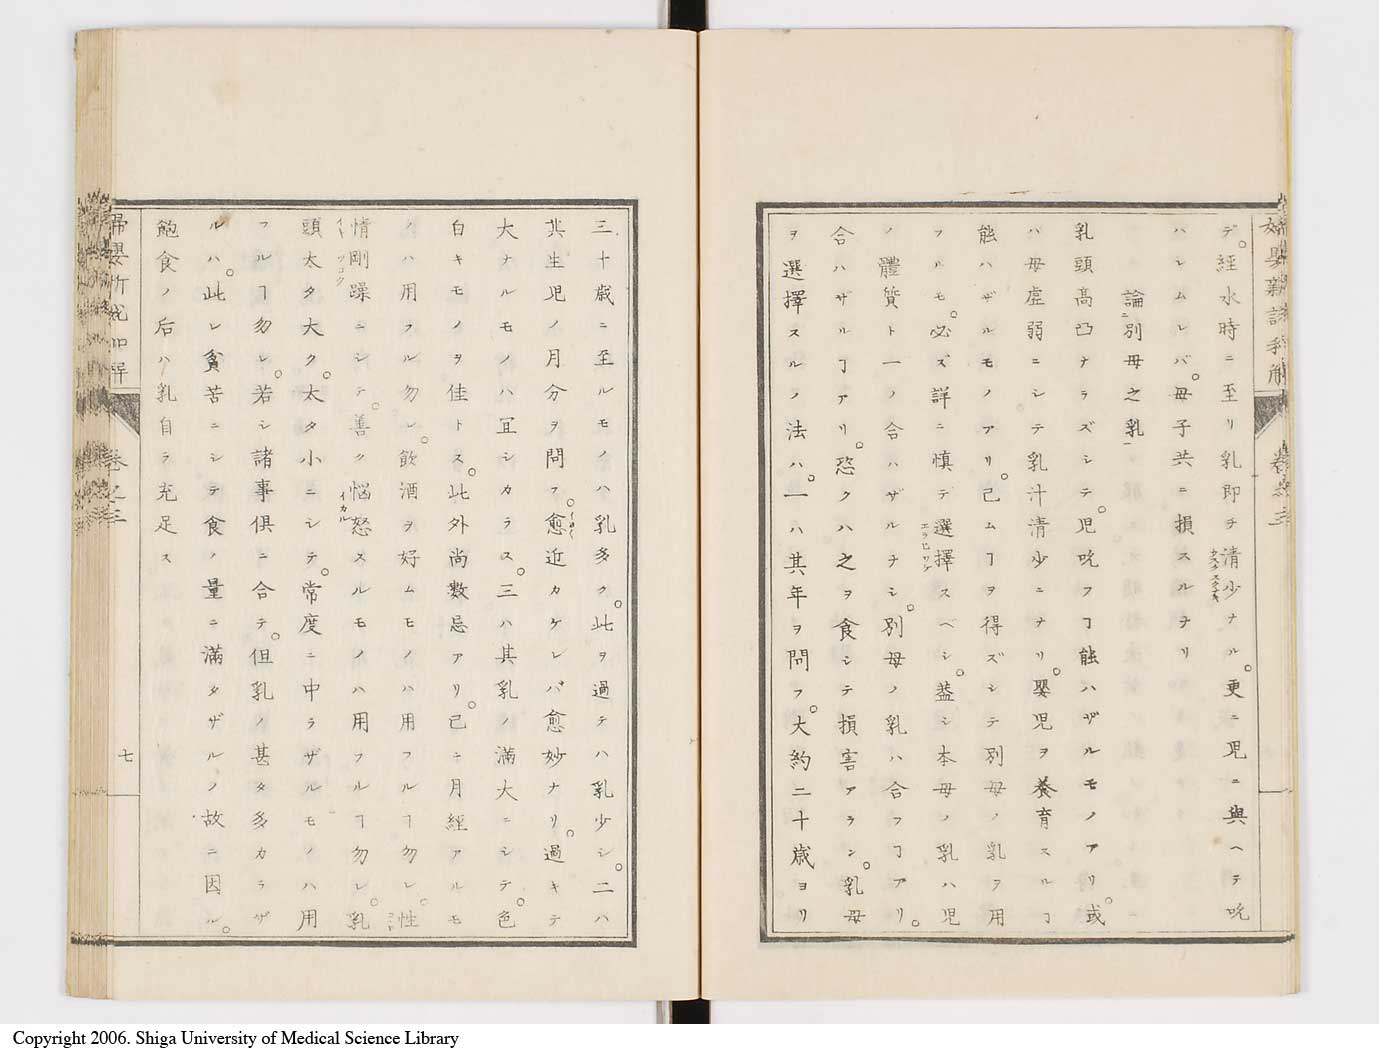 デ。經水時ニ至リ乳即チ清少ナル。更ニ児ニ與ヘテ吮
カスクスクナキ
ハシムレバ。母子共ニ損スルナリ
論別母之乳
乳頭高凸ナラズシテ。児吮フヿ能ハザルモノアリ。或
ハ母虚弱ニシテ乳汁清少ニナリ。嬰児ヲ養育スルヿ
能ハザルモノアリ。已ムヿヲ得ズシテ別母ノ乳ヲ用
フルモ。必ズ詳ニ慎デ選擇スベシ。葢シ本母ノ乳ハ児
エラヒヌク
ノ體質ト一ノ合ハザルナシ。別母ノ乳ハ合フヿアリ。
合ハザルヿアリ。恐クハ之ヲ食シテ損害アラン。乳母
ヲ選擇スルノ法ハ。一ハ其年ヲ問フ。大約二十歳ヨリ
三十歳ニ至ルモノハ乳多ク。此ヲ過テハ乳少シ。二ハ
其生児ノ月分ヲ問フ。愈近カケレバ愈妙ナリ。過キテ
大ナルモノハ冝シカラス。三ハ其乳ノ満大ニシテ。色
白キモノヲ佳トス。此外尚數忌アリ。已ニ月經アルモ
ノハ用フル勿レ。飲酒ヲ好ムモノハ用フルヿ勿レ。性
情剛躁ニシテ。善ク惱怒スルモノハ用フルヿ勿レ。乳
イカル
頭太タ大ク。太タ小ニシテ。常度ニ中ラザルモノハ用
フルヿ勿レ。若シ諸事倶ニ合テ。但乳ノ甚タ多カラザ
ルハ。此レ貧苦ニシテ食ノ量ニ滿タザルノ故ニ因ル。
飽食ノ后ハ乳自ラ充足ス
卷之三
七